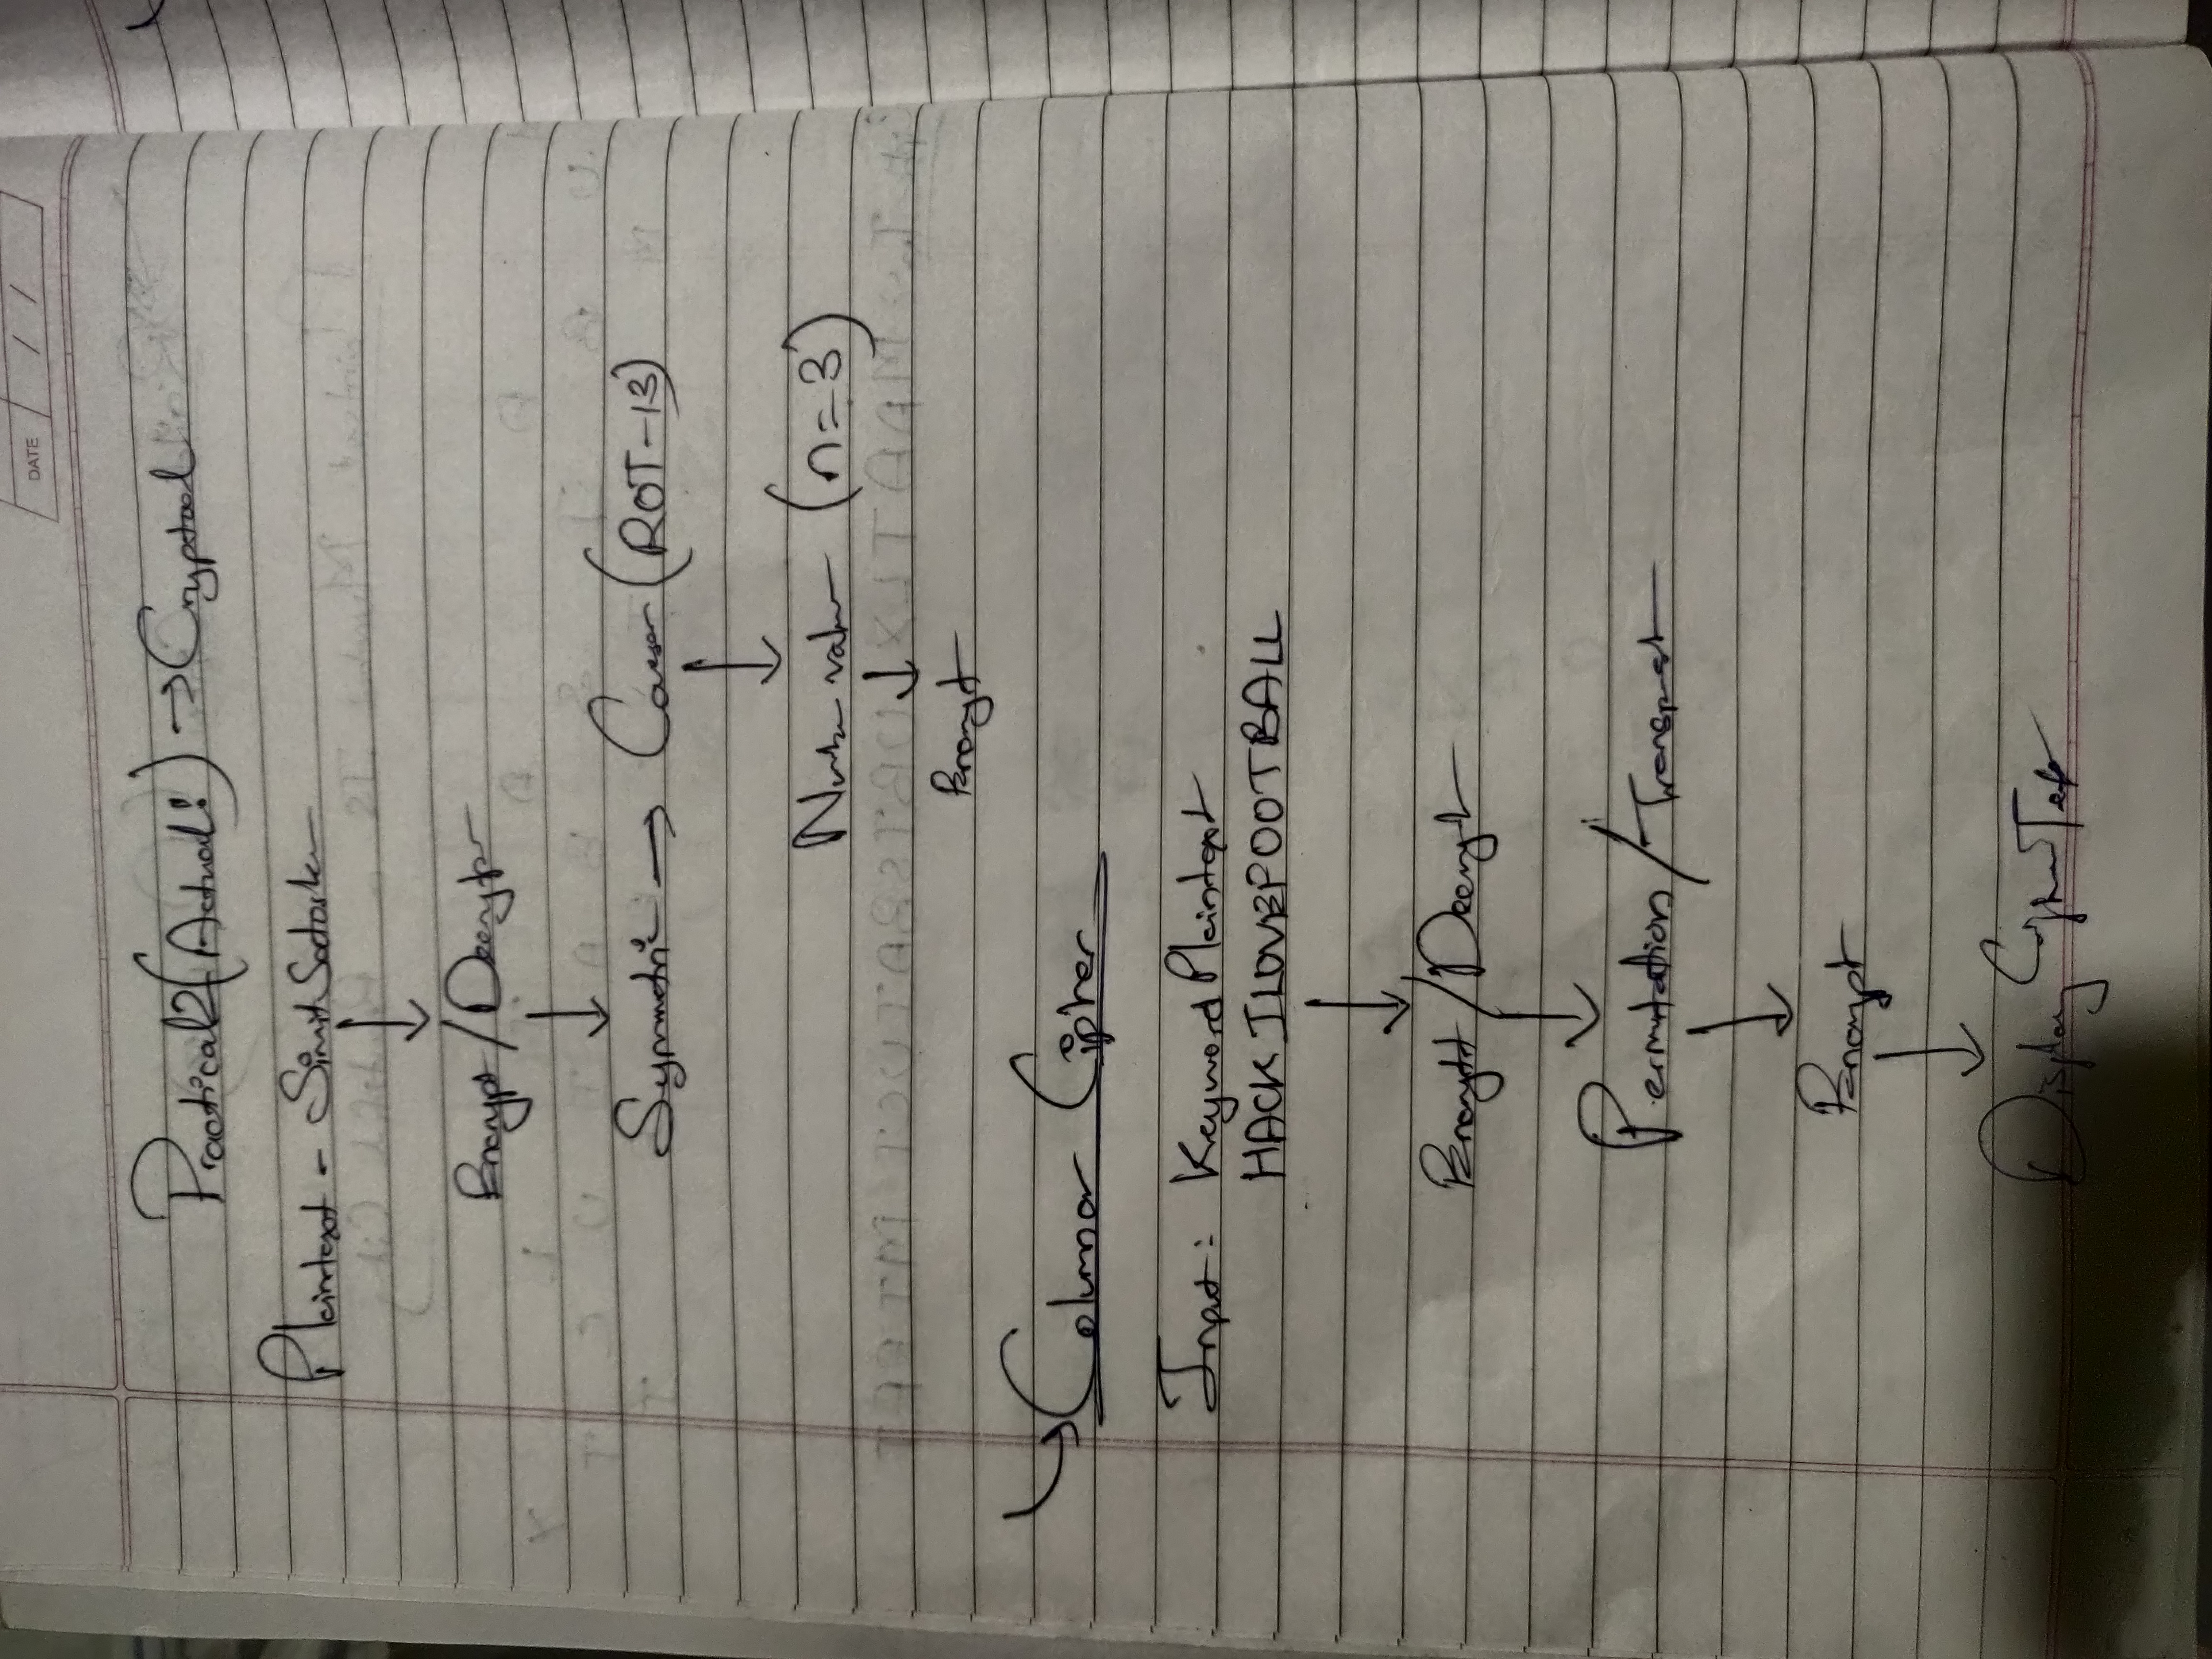 DATE / /
Practical 2 (Actual!) → Cryptool
Plaintext - Simit
↓
Encrypt / Decrypt
↓
Symmetric → Caesar (ROT-13)
↓
Number value (n=3)
↓
Encrypt
↳ Columnar Cipher
Input: Keyword Plaintext
HACK ILOVEFOOTBALL
↓
Encrypt / Decrypt
↓
Permutation / Transpost
↓
Encrypt
↓
Display Cipher Text